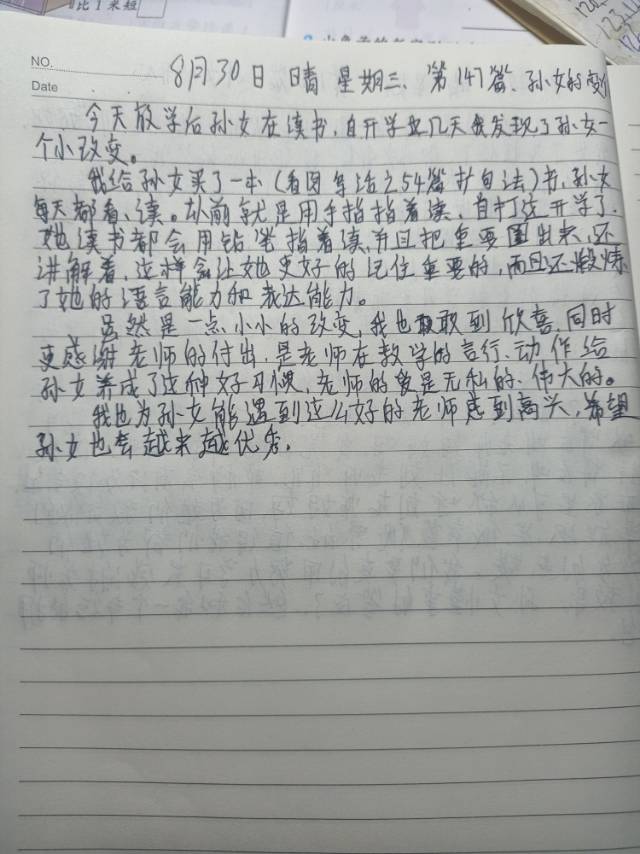 比1来短
NO.
Date
8月30日 晴 星期三、第147篇、孙女的变化
今天放学后孙女在读书，自开学这几天我发现了孙女一
个小改变。
我给孙女买了一本（看图写话之54篇扩句法）书，孙女
每天都看、读。以前就是用手指指着读，自打这开学了，
她读书都会用铅笔指着读，并且把重要圈出来，还
讲解着，这样会让她更好的记住重要的，而且还锻炼
了她的语言能力和表达能力。
虽然是一点小小的改变，我也敢到欣喜，同时
更感谢老师的付出，是老师在教学的言行、动作给
孙女养成了这种好习惯，老师的爱是无私的、伟大的。
我也为孙女能遇到这么好的老师感到高兴，希望
孙女也会越来越优秀。